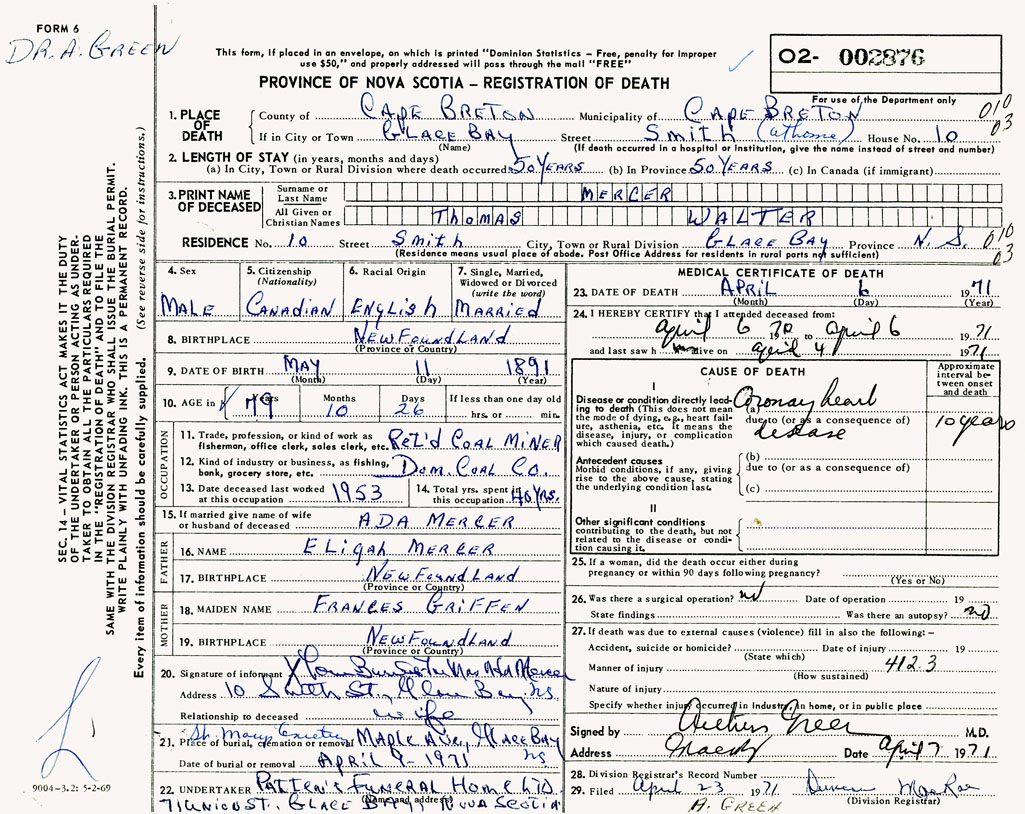 FORM 6
DR. A. GREEN
This form, if placed in an envelope, on which is printed "Dominion Statistics – Free, penalty for improper
use $50," and properly addressed will pass through the mail "FREE"
O2- 002876
PROVINCE OF NOVA SCOTIA – REGISTRATION OF DEATH
For use of the Department only
010
03
1. PLACE OF DEATH
County of CAPE BRETON Municipality of CAPE BRETON
If in City or Town GLACE BAY Street Smith (at home) House No. 10
(Name) (If death occurred in a hospital or institution, give the name instead of street and number)
2. LENGTH OF STAY (in years, months and days)
(a) In City, Town or Rural Division where death occurred 50 YEARS (b) In Province 50 YEARS (c) In Canada (if immigrant)
3. PRINT NAME OF DECEASED
Surname or Last Name MERCER
All Given or Christian Names THOMAS WALTER
RESIDENCE No. 10 Street Smith City, Town or Rural Division GLACE BAY Province N.S. 010
(Residence means usual place of abode. Post Office Address for residents in rural parts not sufficient) 03
4. Sex
MALE
5. Citizenship
(Nationality)
CANADIAN
6. Racial Origin
ENGLISH
7. Single, Married,
Widowed or Divorced
(write the word)
MARRIED
8. BIRTHPLACE NEWFOUNDLAND
(Province or Country)
9. DATE OF BIRTH MAY 11 1891
(Month) (Day) (Year)
10. AGE in Years Months Days If less than one day old
79 10 26 hrs. or min.
OCCUPATION
11. Trade, profession, or kind of work as
fisherman, office clerk, sales clerk, etc. RET'D COAL MINER
12. Kind of industry or business, as fishing,
bank, grocery store, etc. DOM. COAL CO.
13. Date deceased last worked
at this occupation 1953
14. Total yrs. spent in
this occupation 40 YRS.
15. If married give name of wife
or husband of deceased ADA MERCER
FATHER
16. NAME ELIGAH MERCER
17. BIRTHPLACE NEWFOUNDLAND
(Province or Country)
MOTHER
18. MAIDEN NAME FRANCES GRIFFEN
19. BIRTHPLACE NEWFOUNDLAND
(Province or Country)
20. Signature of informant Mrs Ada Mercer
Address 10 Smith St., Glace Bay, NS
Relationship to deceased wife
21. Place of burial, cremation or removal MAPLE AVE, GLACE BAY
Date of burial or removal APRIL 9 – 1971 NS
22. UNDERTAKER PATTEN'S FUNERAL HOME LTD.
(Name and address)
71 UNION ST. GLACE BAY NOVA SCOTIA
MEDICAL CERTIFICATE OF DEATH
23. DATE OF DEATH APRIL 6 1971
(Month) (Day) (Year)
24. I HEREBY CERTIFY that I attended deceased from:
April 6 1970 to April 6 1971
and last saw h im alive on April 4 1971
CAUSE OF DEATH
Approximate
interval be-
tween onset
and death
I
Disease or condition directly lead-
ing to death (This does not mean
the mode of dying, e.g., heart fail-
ure, asthenia, etc. It means the
disease, injury, or complication
which caused death.)
(a) Coronary heart
due to (or as a consequence of)
disease
10 years
Antecedent causes
Morbid conditions, if any, giving
rise to the above cause, stating
the underlying condition last.
(b)
due to (or as a consequence of)
(c)
II
Other significant conditions
contributing to the death, but not
related to the disease or condi-
tion causing it.
25. If a woman, did the death occur either during
pregnancy or within 90 days following pregnancy?
(Yes or No)
26. Was there a surgical operation? no Date of operation 19
State findings Was there an autopsy? no
27. If death was due to external causes (violence) fill in also the following: –
Accident, suicide or homicide? Date of injury 19
(State which)
Manner of injury 412.3
(How sustained)
Nature of injury
Specify whether injury occurred in industry, in home, or in public place
Signed by Arthur Green M.D.
Address Date April 7 1971
28. Division Registrar's Record Number
29. Filed April 23 1971 MacRae
(Division Registrar)
A. GREEN
SEC. 14 – VITAL STATISTICS ACT MAKES IT THE DUTY
OF THE UNDERTAKER OR PERSON ACTING AS UNDER-
TAKER TO OBTAIN ALL THE PARTICULARS REQUIRED
IN THE "REGISTRATION OF DEATH" AND TO FILE THE
SAME WITH THE DIVISION REGISTRAR WHO SHALL ISSUE THE BURIAL PERMIT.
WRITE PLAINLY WITH UNFADING INK. THIS IS A PERMANENT RECORD.
Every item of information should be carefully supplied. (See reverse side for instructions.)
9004-3.2: 5-2-69